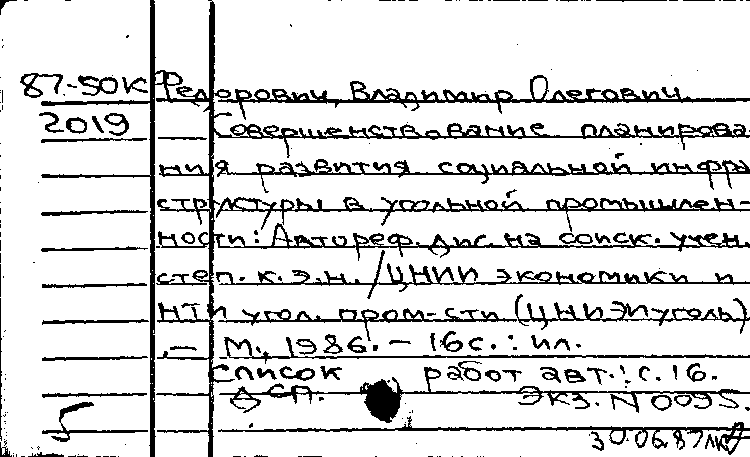 87-50К Федорович, Владимир Олегович.
2019 Совершенствование планирова-
ния развития социальной инфра
структуры в угольной промышлен-
ности: Автореф. дис. на соиск. учен.
степ. к.э.н. / ЦНИИ экономики и
НТИ угол. пром-сти (ЦНИЭИуголь)
.- М., 1986. - 16с. : ил.
Список работ авт.: с. 16.
ДСП. Экз. N 0095.
5
30.06.87